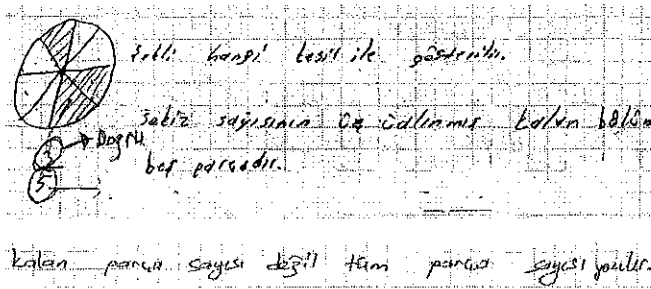 Şekli hangi kesir ile gösterilir.
Sekiz sayısının üç ü alınmış kalan bölüm
3 → Doğru
beş parçadır.
5
kalan parça sayısı değil tüm parça sayısı yazılır.